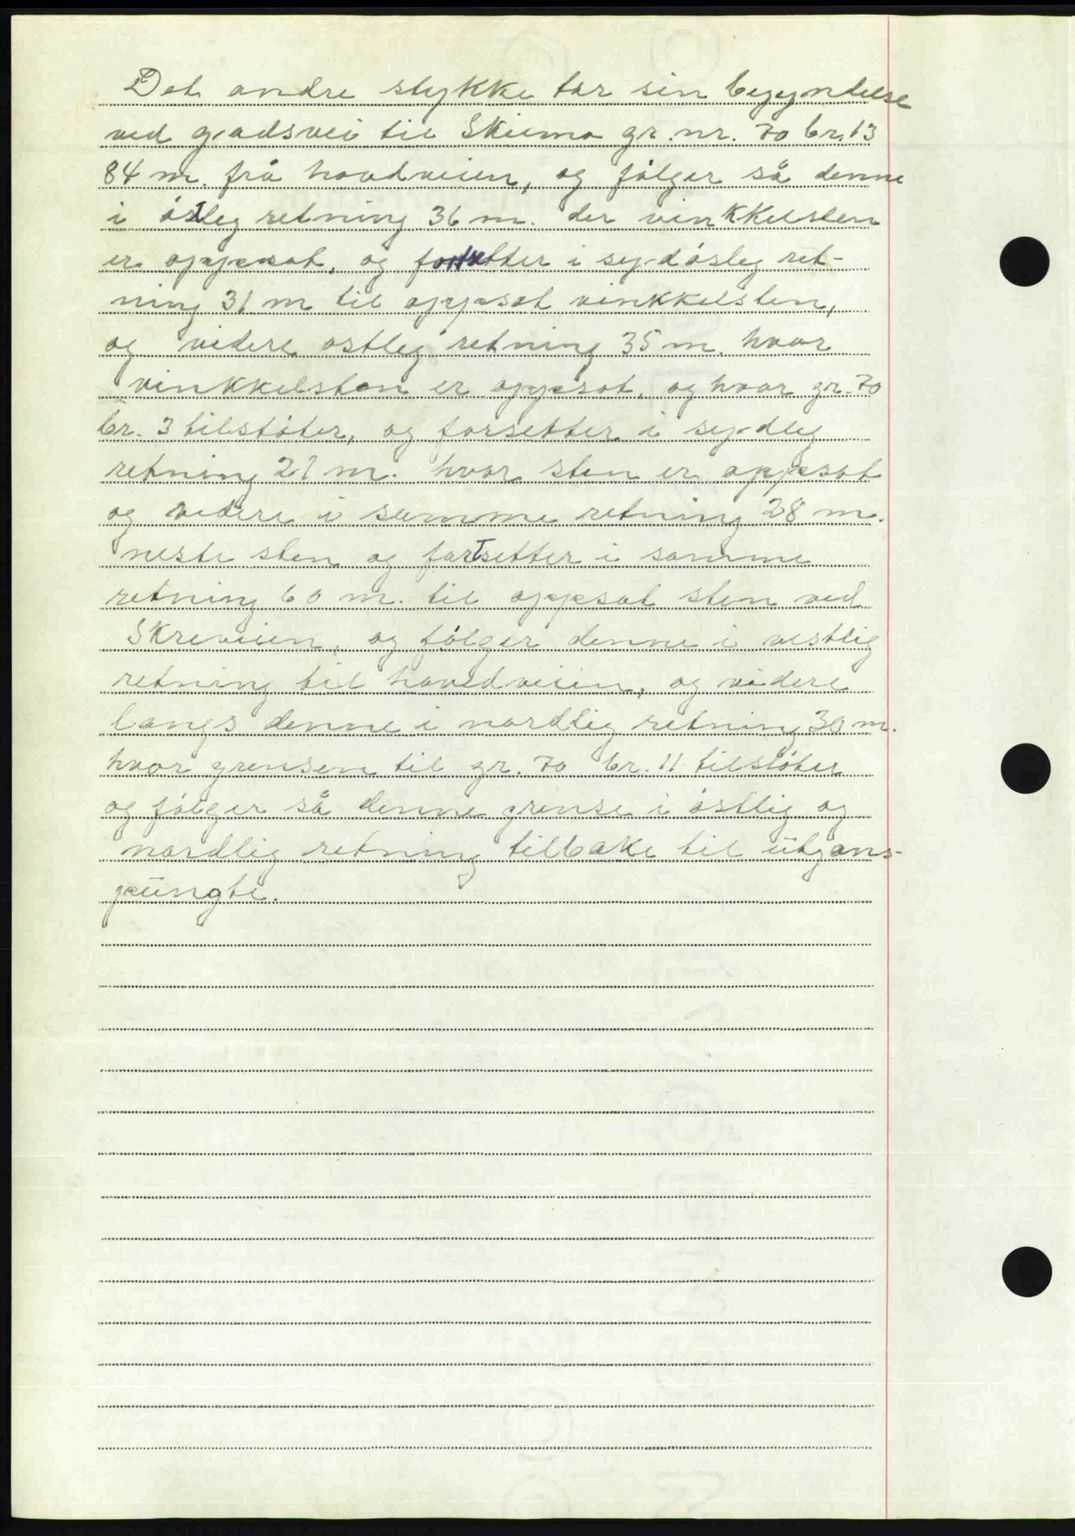 Det andre stykke tar sin begyndelse
ved gardsvei til Skeime gr. nr. 70 br. 13
84 m. frå hovdveien, og følger så denne
i östleg retning 36 m. der vinkkelsten
er oppsat, og fortsetter i syd ösleg ret-
ning 31 m til oppsat vinkkelsten,
og videre ostleg retning 35 m. hvor
vinkkelsten er oppsat, og hvor gr. 70
br. 3 tilstöter, og forsetter i sydleg
retning 27 m. hvor sten er oppsat
og videre i samme retning 28 m.
neste sten og fortsetter i samme
retning 60 m. til oppsat sten ved
og følger denne i vestlig
retning til hovedveien, og videre
langs denne i nordlig retning 30 m.
hvor grensen til gr. 70 br. 11 tilstöter
og følger så denne grense i östlig og
nordlig retning tilbake til utgans-
pungte.